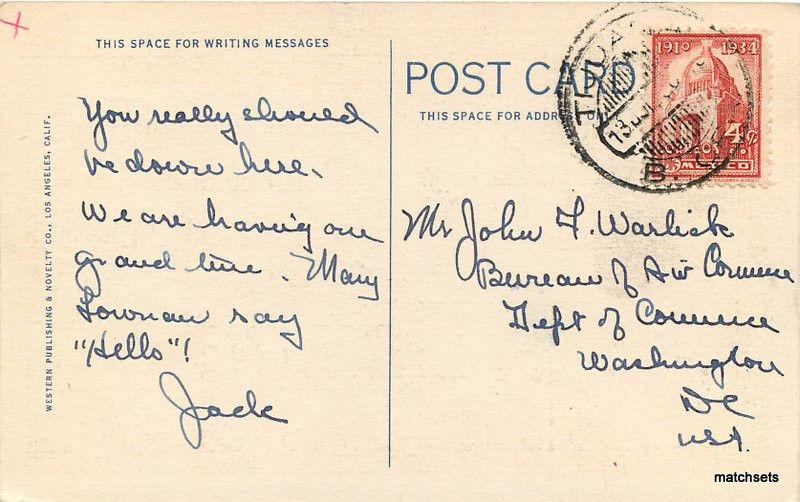 THIS SPACE FOR WRITING MESSAGES
You really should
be down here.
We are having one
grand time. Mary
say
"Hello"!
Jack
WESTERN PUBLISHING & NOVELTY CO., LOS ANGELES, CALIF.
POST CARD
THIS SPACE FOR ADDRESS ONLY
1910 1934
4 ¢
MEXICO
TIJUANA
13
B.
Mr John F. Warlick
Bureau of Air Commerce
Dept of Commerce
Washington
DC
USA.
matchsets